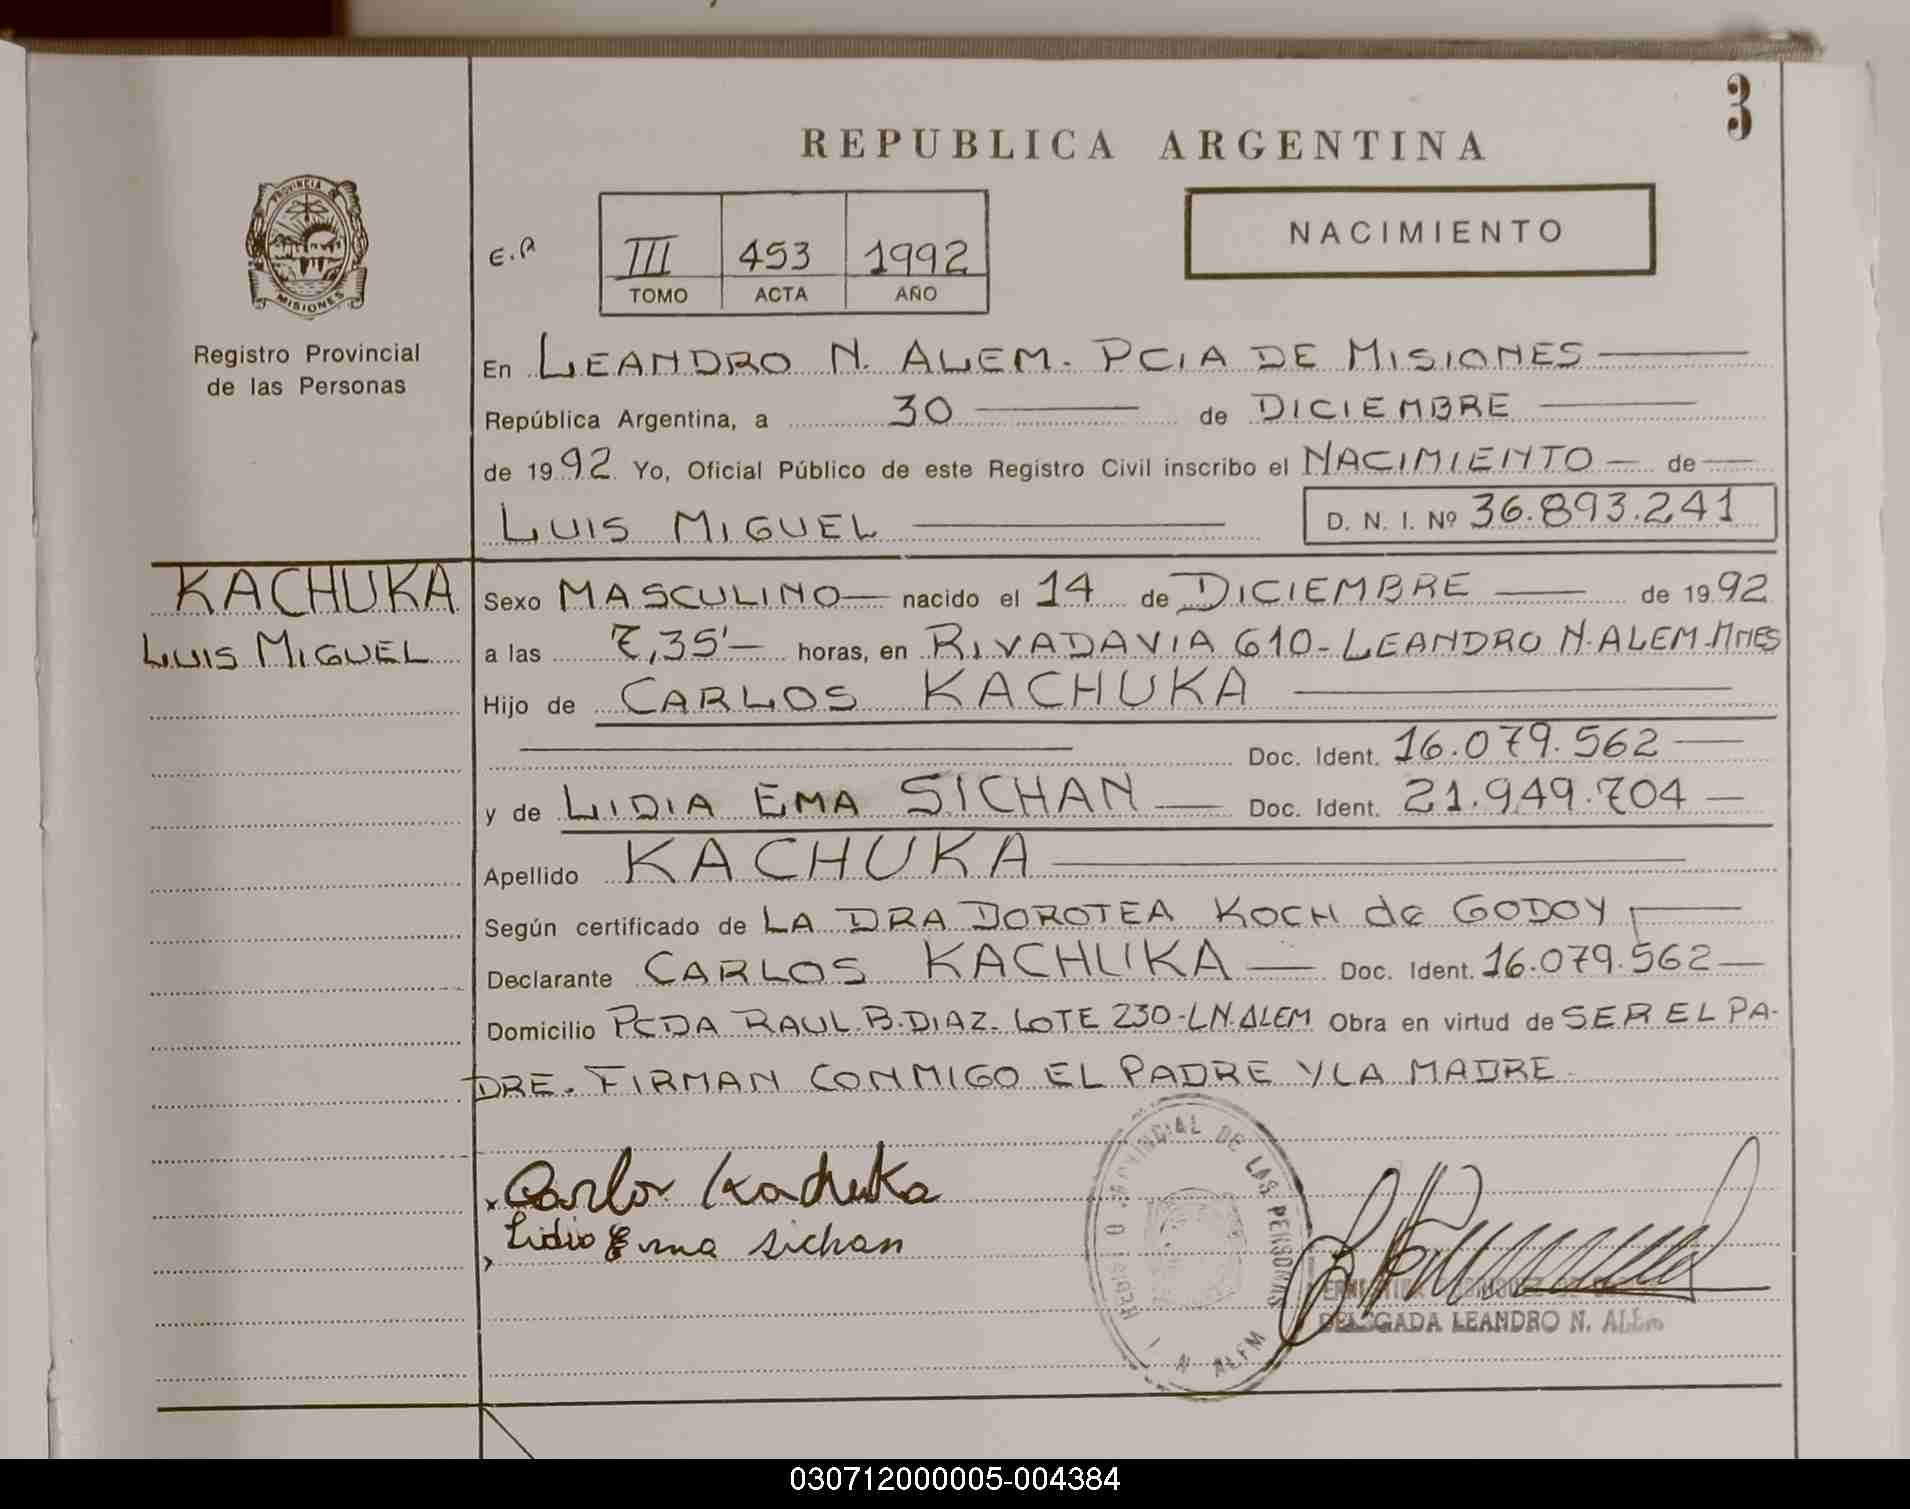 3
REPUBLICA ARGENTINA
PROVINCIA
MISIONES
Registro Provincial
de las Personas
E.R
III 453 1992
TOMO ACTA AÑO
NACIMIENTO
En LEANDRO N. ALEM. PCIA DE MISIONES
República Argentina, a 30 de DICIEMBRE
de 1992 Yo, Oficial Público de este Registro Civil inscribo el NACIMIENTO de
LUIS MIGUEL D. N. I. Nº 36.893.241
KACHUKA
LUIS MIGUEL
Sexo MASCULINO nacido el 14 de DICIEMBRE de 1992
a las 7,35' horas, en RIVADAVIA 610-LEANDRO N.ALEM-MNES
Hijo de CARLOS KACHUKA
Doc. Ident. 16.079.562
y de LIDIA EMA SICHAN Doc. Ident. 21.949.704
Apellido KACHUKA
Según certificado de LA DRA DOROTEA KOCH de GODOY
Declarante CARLOS KACHUKA Doc. Ident. 16.079.562
Domicilio PCDA RAUL B.DIAZ. LOTE 230-LN.ALEM Obra en virtud de SER EL PA-
DRE. FIRMAN CONMIGO EL PADRE Y LA MADRE
x Carlos Kachuka
Lidia Ema Sichan
PROVINCIAL DE LAS PERSONAS
N ALEM
DELEGADA LEANDRO N. ALEM
030712000005-004384